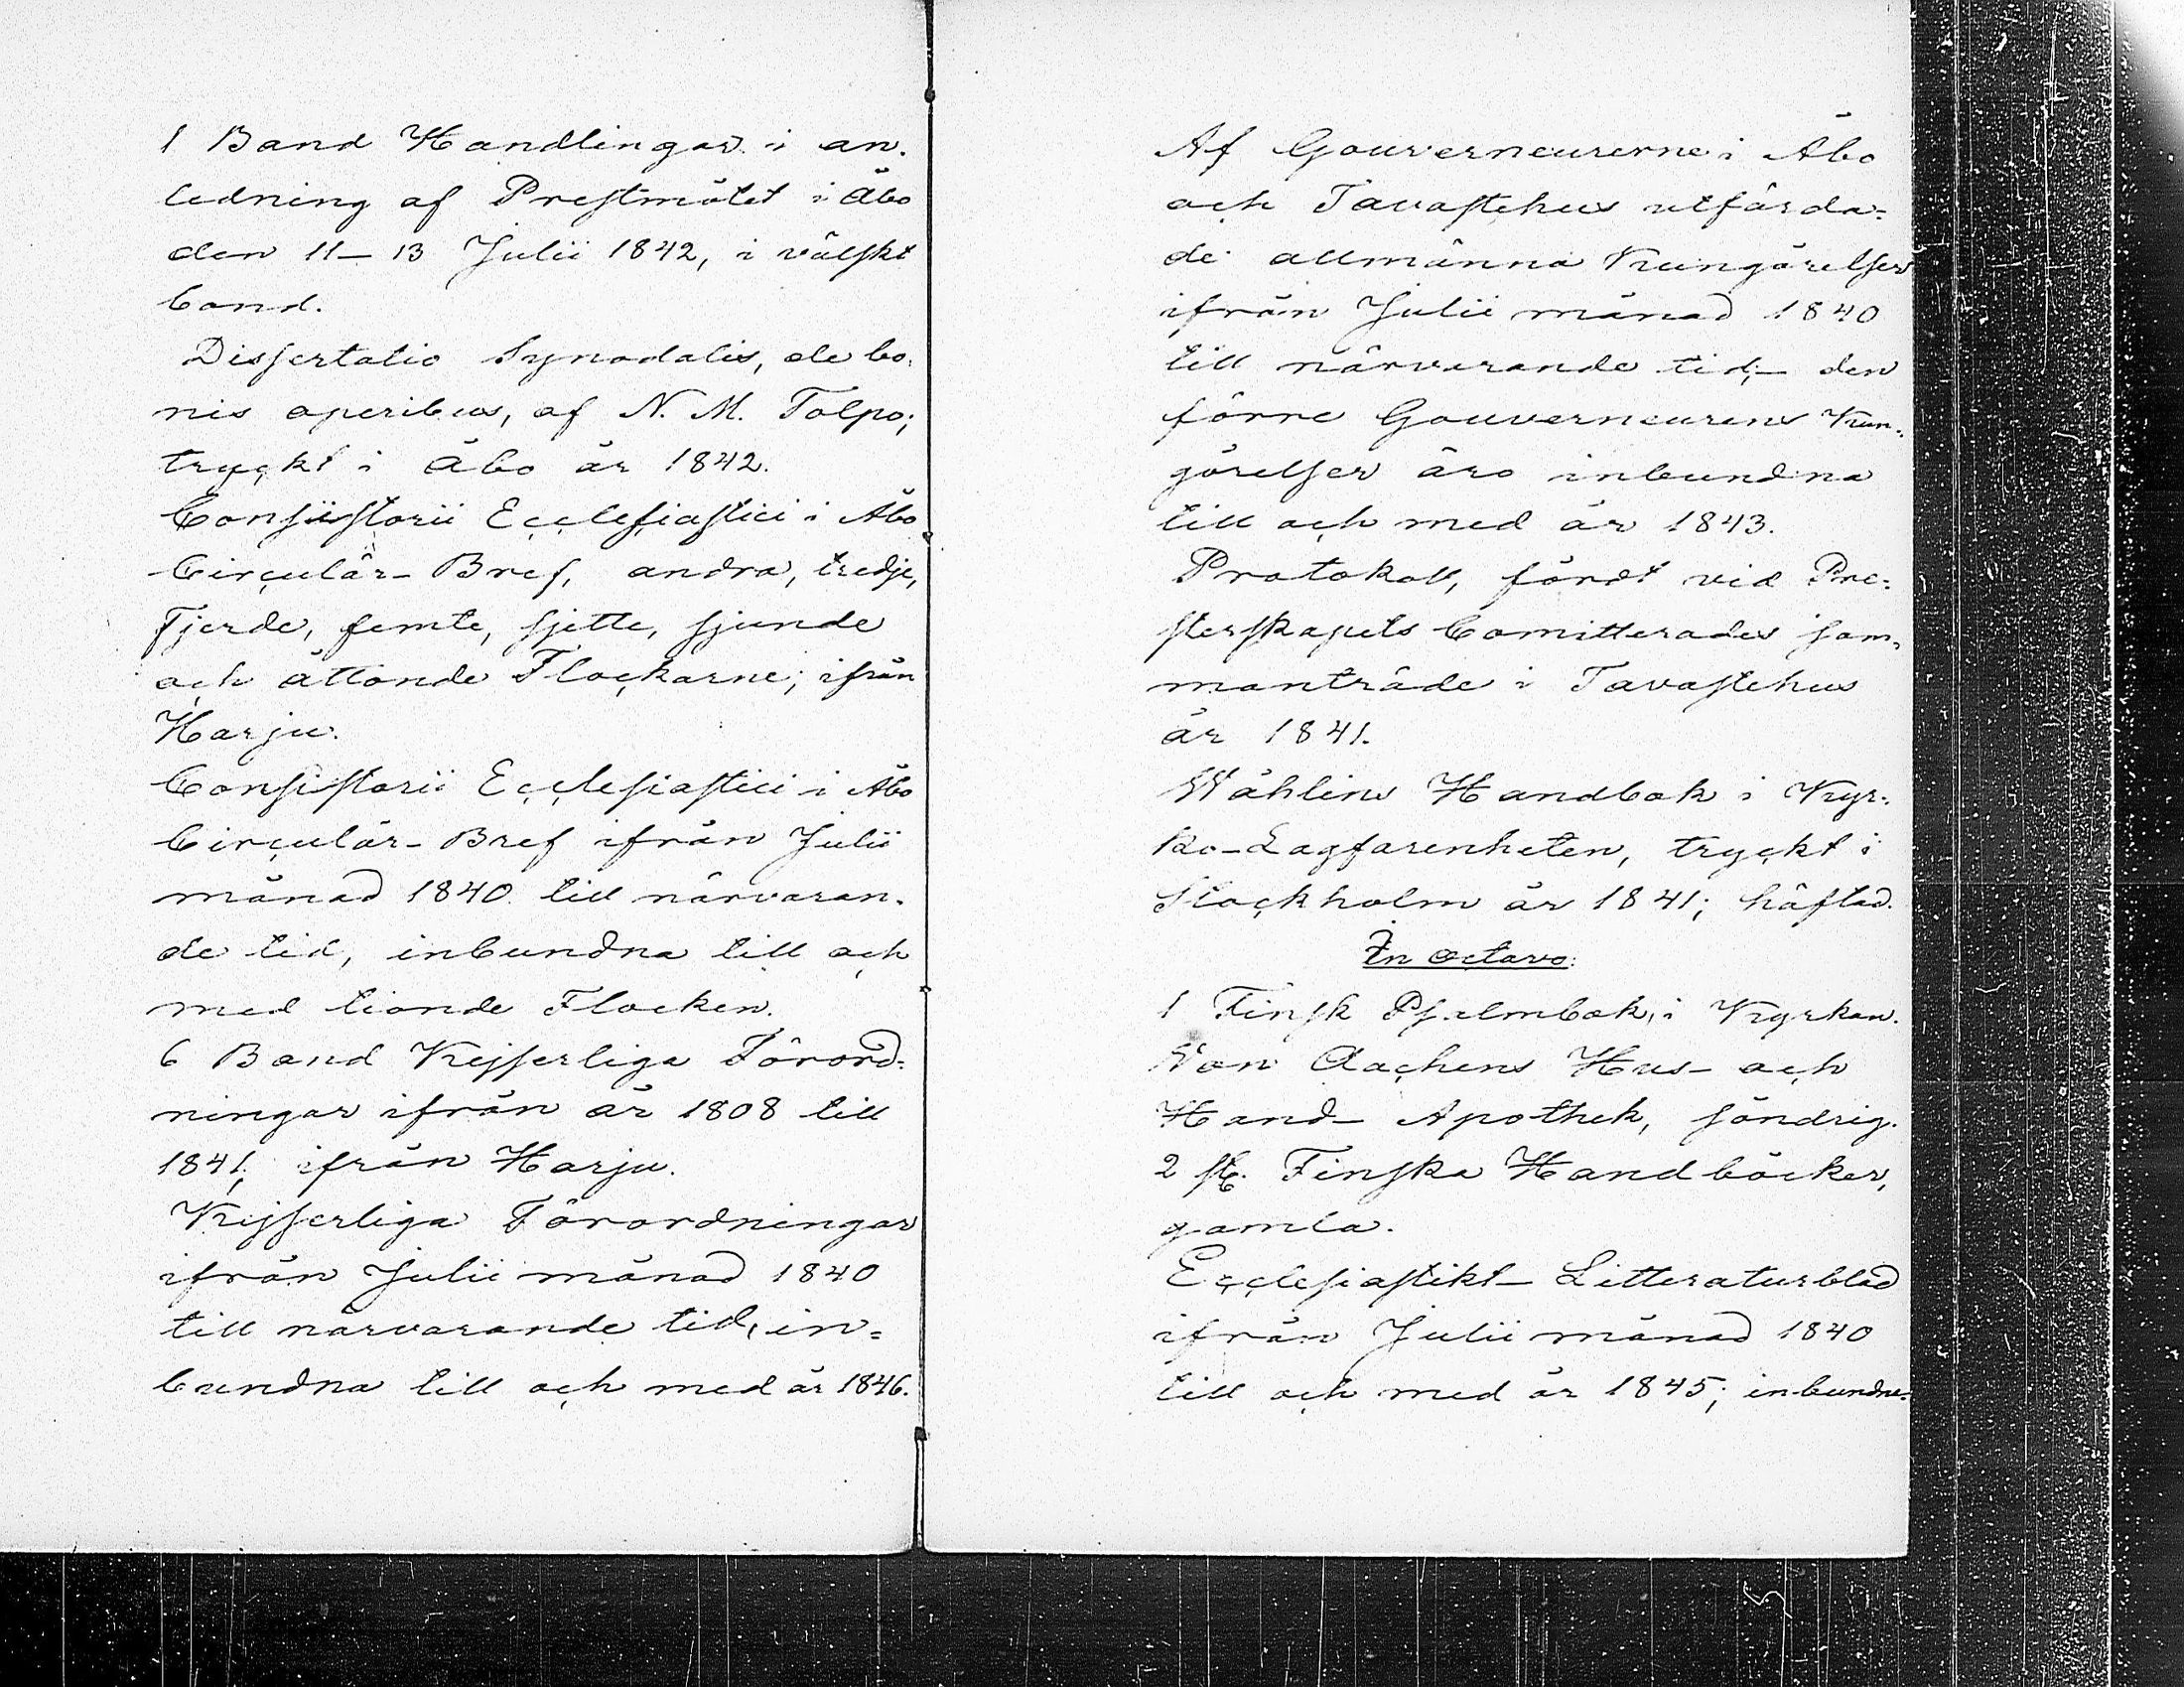 1 Band Handlingar i an-
ledning af Prestmötet i Åbo
den 11–13 Julii 1842, i välskt
band.
Dissertatio Synodalis, de bo-
nis operibus, af N. M. Tolpo;
tryckt i Åbo år 1842.
Consistorii Ecclesiastici i Åbo
Circulär-Bref, andra, tredje,
Fjerde, femte, sjette, sjunde
och åttonde Flockarne; ifrån
Harju.
Consistorii Ecclesiastici i Åbo
Circulär-Bref ifrån Julii
månad 1840 till närvaran-
de tid, inbundna till och
med tionde Flocken.
6 Band Kejserliga Förord-
ningar ifrån år 1808 till
1841; ifrån Harju.
Kejserliga Förordningar
ifrån Julii månad 1840
till närvarande tid, in-
bundna till och med år 1846.
Af Gouverneurerne i Åbo
och Tavastehus utfärda-
de allmänna Kungörelser
ifrån Julii månad 1840
till närvarande tid;– den
förre Gouverneurens Kun-
görelser äro inbundna
till och med år 1843.
Protokoll, fördt vid Pre-
sterskapets Comitterades sam-
manträde i Tavastehus
år 1841.
Wåhlins Handbok i Kyr-
ko-Lagfarenheten, tryckt i
Stockholm år 1841; häftad.
In octavo:
1 Finsk Psalmbok, i Kyrkan.
Von Aachens Hus- och
Hand-Apothek, söndrig.
2 st. Finska Handböcker,
gamla.
Ecclesiastikt-Litteraturblad
ifrån Julii månad 1840
till och med år 1845; inbundne.